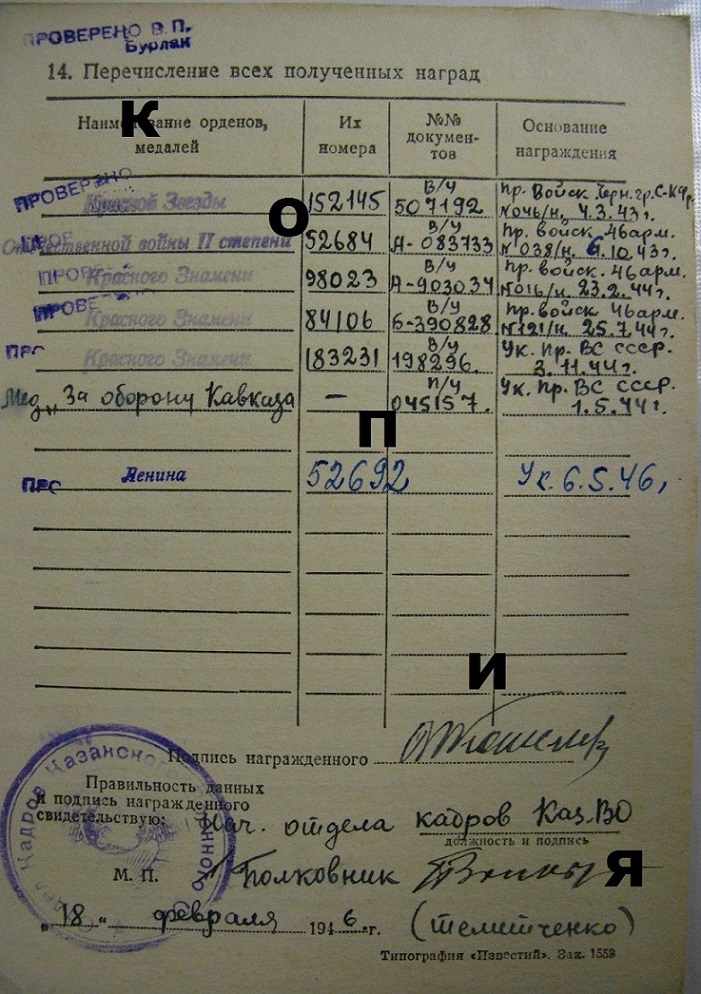 ПРОВЕРЕНО В.П.
Бурлак
14. Перечисление всех полученных наград
Наименование орденов, медалей
Их номера
№№ документов
Основание награждения
ПРОВЕРЕНО
Красной Звезды 152145 В/у 507192 Пр. Войск Черн.гр.С-Кфр №046/н, 4.3.43г.
Отечественной войны II степени 52684 В/у А-083733 Пр. войск 46арм. №038/н. 6.10.43г.
ПРОВ
Красного Знамени 98023 В/у А-903034 Пр. войск. 46арм. №016/н. 23.2.44г.
ПРОВЕ
Красного Знамени 84106 В/у Б-390828 Пр. войск 46арм. №121/н. 25.7.44г.
Красного Знамени 183231 В/у 198296. Ук. Пр. ВС СССР. 3.11.44г.
Мед. "За оборону Кавказа — П/у 045157. Ук. Пр. ВС СССР. 1.5.44г.
Ленина 52692 Ук. 6.5.46г
К О П И Я
Подпись награжденного
Правильность данных
и подпись награжденного
свидетельствую: Нач. отдела кадров Каз.ВО
должность и подпись
М. П. Полковник
"18" февраля 1946г.
Типография «Известий». Зак. 1559